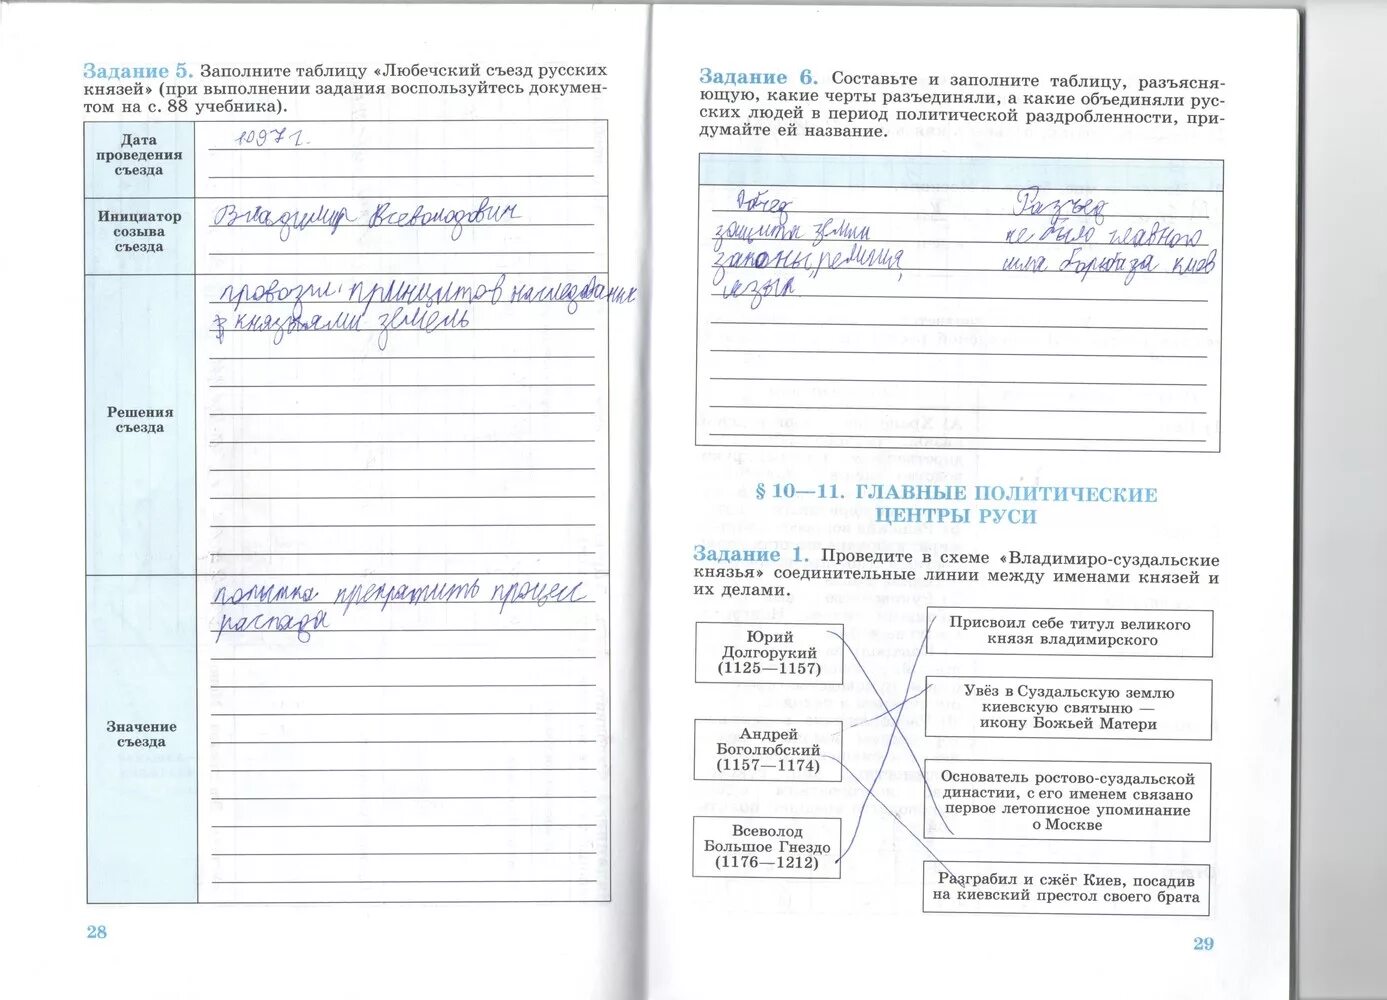 Задание 5. Заполните таблицу «Любечский съезд русских
князей» (при выполнении задания воспользуйтесь докумен-
том на с. 88 учебника).
Дата
проведения
съезда
1097 г.
Инициатор
созыва
съезда
Владимир Всеволодович
Решения
съезда
провозгл. принципов наследования
князьями земель
Значение
съезда
попытка прекратить процесс
распада
28
Задание 6. Составьте и заполните таблицу, разъясня-
ющую, какие черты разъединяли, а какие объединяли рус-
ских людей в период политической раздробленности, при-
думайте ей название.
Объед Разъед
защита земли не было главного
законы, религия, шла борьба за киев
язык.
§ 10—11. ГЛАВНЫЕ ПОЛИТИЧЕСКИЕ
ЦЕНТРЫ РУСИ
Задание 1. Проведите в схеме «Владимиро-суздальские
князья» соединительные линии между именами князей и
их делами.
Юрий
Долгорукий
(1125—1157)
Андрей
Боголюбский
(1157—1174)
Всеволод
Большое Гнездо
(1176—1212)
Присвоил себе титул великого
князя владимирского
Увёз в Суздальскую землю
киевскую святыню —
икону Божьей Матери
Основатель ростово-суздальской
династии, с его именем связано
первое летописное упоминание
о Москве
Разграбил и сжёг Киев, посадив
на киевский престол своего брата
29